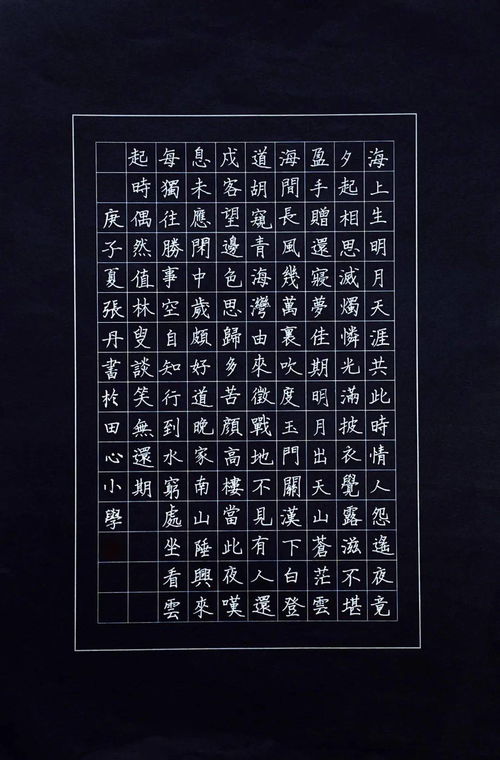 海上生明月天涯共此時情人怨遙夜竟
夕起相思滅燭憐光滿披衣覺露滋不堪
盈手贈還寢夢佳期明月出天山蒼茫雲
海間長風幾萬裏吹度玉門關漢下白登
道胡窺青海灣由來徵戰地不見有人還
戍客望邊色思歸多苦顏高樓當此夜嘆
息未應閑中歲頗好道晚家南山陲興來
每獨往勝事空自知行到水窮處坐看雲
起時偶然值林叟談笑無還期
庚子夏張丹書於田心小學